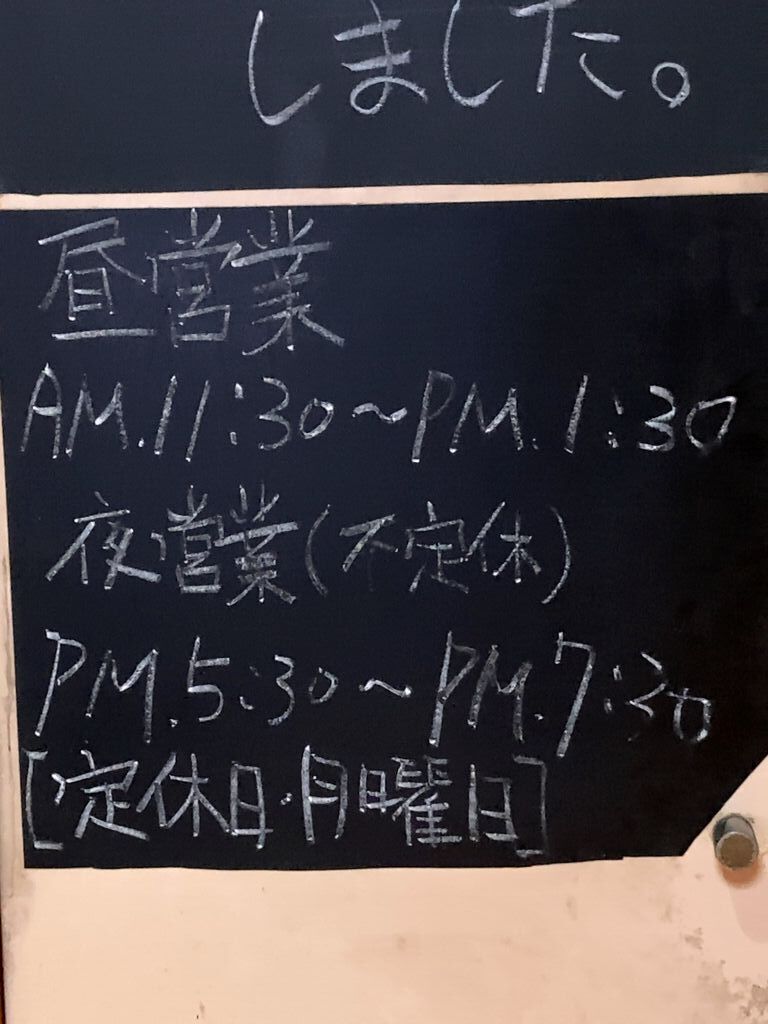 しました。
昼営業
AM.11:30～PM.1:30
夜営業(不定休)
PM.5:30～PM.7:30
[定休日·月曜日]